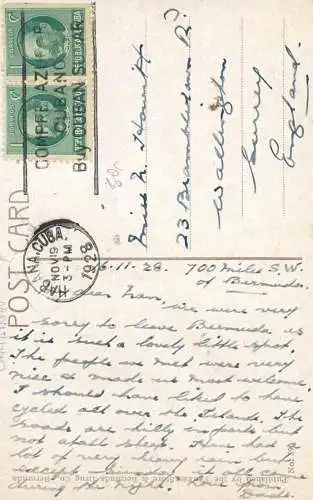 COMPRE AZUCAR
CUBANO
Buy CUBAN SUGAR
HABANA, CUBA.
NOV 19
3-PM.
1928
POST CARD
Miss N. Howitt
23 Brambledown Rd
Wallington
Surrey
England.
6.11.28. 700 Miles S.W.
of Bermuda.
Dear Fran, We were very
sorry to leave Bermuda it
is such a lovely little spot.
The people we met were very
nice & made us most welcome.
I should have liked to have
cycled all over the Islands. The
roads are hilly in parts but
not at all steep. Have had a
lot of very rain but
except Sunday it all came
during the night.
Dad.
The Yankee Store & Bermuda Drug Co., Bermuda